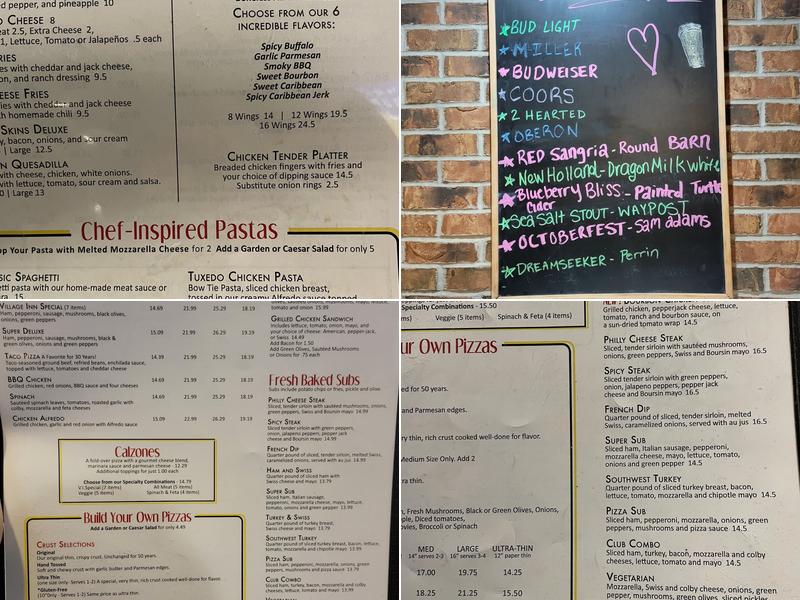 ed pepper, and pineapple 10
D CHEESE 8
eat 2.5, Extra Cheese 2,
1, Lettuce, Tomato or Jalapeños .5 each
RIES
es with cheddar and jack cheese,
on, and ranch dressing 9.5
EESE FRIES
ies with cheddar and jack cheese
th homemade chili 9.5
SKINS DELUXE
y, bacon, onions, and sour cream
| Large 12.5
N QUESADILLA
with cheese, chicken, white onions.
with lettuce, tomato, sour cream and salsa.
0 | Large 13
CHOOSE FROM OUR 6
INCREDIBLE FLAVORS:
Spicy Buffalo
Garlic Parmesan
Smoky BBQ
Sweet Bourbon
Sweet Caribbean
Spicy Caribbean Jerk
8 Wings 14 | 12 Wings 19.5
16 Wings 24.5
CHICKEN TENDER PLATTER
Breaded chicken fingers with fries and
your choice of dipping sauce 14.5
Substitute onion rings 2.5
Chef-Inspired Pastas
op Your Pasta with Melted Mozzarella Cheese for 2 Add a Garden or Caesar Salad for only 5
SIC SPAGHETTI
etti pasta with our home-made meat sauce or
ra 15
TUXEDO CHICKEN PASTA
Bow Tie Pasta, sliced chicken breast,
tossed in our creamy Alfredo sauce topped
BUD LIGHT
MILLER
BUDWEISER
COORS
2 HEARTED
OBERON
RED Sangria - Round Barn
New Holland - Dragon Milk white
Blueberry Bliss - Painted Turtle
Cider
Sea Salt STOUT - WAYPOST
OCTOBERFEST - Sam adams
DREAMSEEKER - Perrin
VILLAGE INN SPECIAL (7 items) 14.69 21.99 25.29 18.19
Ham, pepperoni, sausage, mushrooms, black olives,
onions, green peppers
SUPER DELUXE 15.09 21.99 26.29 19.19
Ham, pepperoni, sausage, mushrooms, black &
green olives, onions and green peppers
TACO PIZZA A Favorite for 30 Years! 14.39 21.99 25.29 18.19
Taco-seasoned ground beef, refried beans, enchilada sauce,
topped with lettuce, tomatoes and cheddar cheese
BBQ CHICKEN 14.69 21.99 25.29 18.19
Grilled chicken, red onions, BBQ sauce and four cheeses
SPINACH 14.69 21.99 25.29 18.19
Sautéed spinach leaves, tomatoes, roasted garlic with
colby, mozzarella and feta cheeses
CHICKEN ALFREDO 15.09 22.99 26.29 19.19
Grilled chicken, garlic and red onion with Alfredo sauce
Calzones
A fold-over pizza with a gourmet cheese blend,
marinara sauce and parmesan cheese 12.29
Additional toppings for just 1.00 each
Choose from our Specialty Combinations - 14.79
V.I. Special (7 items) All Meat (5 items)
Veggie (5 items) Spinach & Feta (4 items)
Build Your Own Pizzas
Add a Garden or Caesar Salad for only 4.49
CRUST SELECTIONS
Original
Our original thin, crispy crust. Unchanged for 50 years.
Hand Tossed
Soft and chewy crust with garlic butter and Parmesan edges.
Ultra Thin
(one size only - Serves 1-2) A special, very thin, rich crust cooked well-done for flavor.
*Gluten-Free
(10"Only - Serves 1-2) Same price as ultra thin.
tomato and onion 15.99
GRILLED CHICKEN SANDWICH
Includes lettuce, tomato, onion, mayo, and
your choice of cheese: American, pepper-jack,
or Swiss 14.49
Add Bacon for 1.50
Add Green Olives, Sautéed Mushrooms
or Onions for .75 each
Fresh Baked Subs
Subs include potato chips or fries, pickle and olive.
PHILLY CHEESE STEAK
Sliced, tender sirloin with sautéed mushrooms, onions,
green peppers, Swiss and Boursin mayo 14.99
SPICY STEAK
Sliced tender sirloin with green peppers,
onion, jalapeno peppers, pepper jack
cheese and Boursin mayo 14.99
FRENCH DIP
Quarter pound of sliced, tender sirloin, melted Swiss,
caramelized onions, served with au jus 14.99
HAM AND SWISS
Quarter pound of sliced ham with
Swiss cheese and mayo 13.79
SUPER SUB
Sliced ham, Italian sausage,
pepperoni, mozzarella cheese, mayo, lettuce,
tomato, onions and green pepper 13.99
TURKEY & SWISS
Quarter pound of turkey breast,
Swiss cheese and mayo 13.79
SOUTHWEST TURKEY
Quarter pound of sliced turkey breast, bacon, lettuce,
tomato, mozzarella and chipotle mayo 13.99
PIZZA SUB
Sliced ham, pepperoni, mozzarella, onions, green
peppers, mushrooms and pizza sauce 13.79
CLUB COMBO
Sliced ham, turkey, bacon, mozzarella and colby
cheeses, lettuce, tomato and mayo 13.79
Specialty Combinations - 15.50
Veggie (5 items) Spinach & Feta (4 items)
ur Own Pizzas
ed for 50 years.
and Parmesan edges.
ry thin, rich crust cooked well-done for flavor.
Medium Size Only. Add 2
ra thin.
h, Fresh Mushrooms, Black or Green Olives, Onions,
ple, Diced tomatoes,
vies, Broccoli or Spinach
MED LARGE ULTRA-THIN
14" serves 2-3 16" serves 3-4 12" paper thin
17.00 19.75 14.25
18.25 21.25 15.50
Grilled chicken, pepperjack cheese, lettuce,
tomato, ranch and bourbon sauce, on
a sun-dried tomato wrap 14.5
PHILLY CHEESE STEAK
Sliced, tender sirloin with sautéed mushrooms,
onions, green peppers, Swiss and Boursin mayo 16.5
SPICY STEAK
Sliced tender sirloin with green peppers,
onion, jalapeno peppers, pepper jack
cheese and Boursin mayo 16.5
FRENCH DIP
Quarter pound of sliced, tender sirloin, melted
Swiss, caramelized onions, served with au jus 16.5
SUPER SUB
Sliced ham, Italian sausage, pepperoni,
mozzarella cheese, mayo, lettuce, tomato,
onions and green pepper 14.5
SOUTHWEST TURKEY
Quarter pound of sliced turkey breast, bacon,
lettuce, tomato, mozzarella and chipotle mayo 14.5
PIZZA SUB
Sliced ham, pepperoni, mozzarella, onions, green
peppers, mushrooms and pizza sauce 14.5
CLUB COMBO
Sliced ham, turkey, bacon, mozzarella and colby
cheeses, lettuce, tomato and mayo 14.5
VEGETARIAN
Mozzarella, Swiss and colby cheese, onions, green